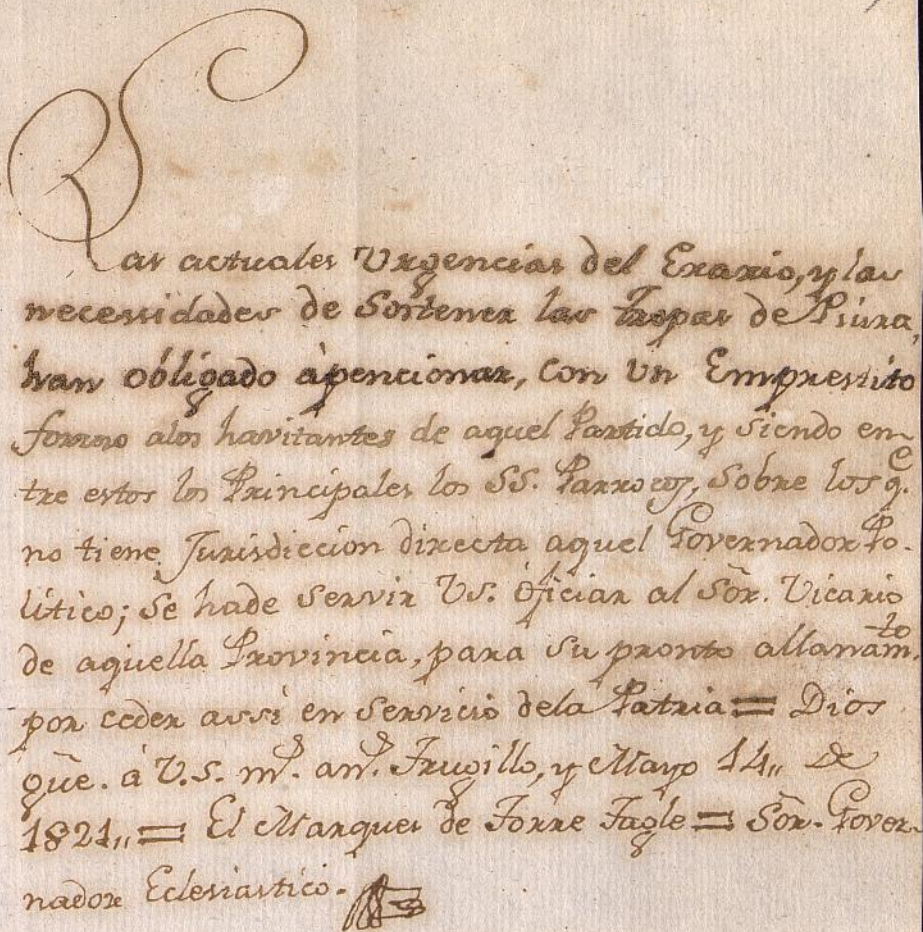 Las actuales Urgencias del Erario, y las
necessidades de Sostener las tropas de Piura,
han obligado àpencionar, con un Emprestito
forzozo alos havitantes de aquel Partido, y siendo en-
tre estos los Principales los SS. Parrocos, Sobre los q.e
no tiene Jurisdiccion directa aquel Governador Po-
litico; Se hade servir Vs. Oficiar al Sõr. Vicario
de aquella Provincia, para su pronto allanam.to
por ceder assi en servicio dela Patria = Dios
gũe. à V.S. m.s an.s Trugillo, y Mayo 14,, de
1821,, = El Marques de Torre Tagle = Sõr. Gover-
nador Eclesiastico.